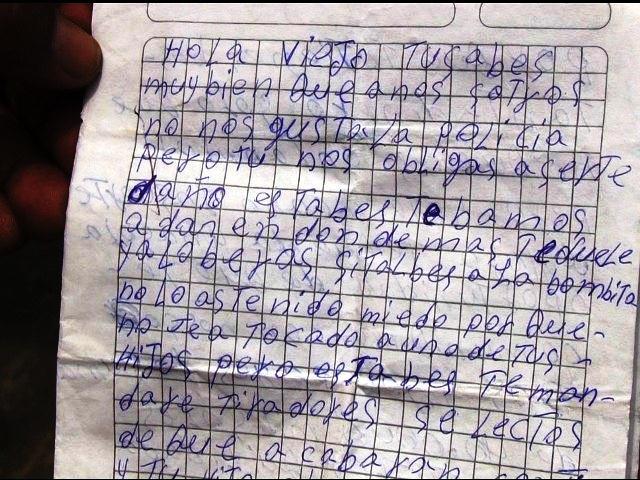 HOLA VIEJO TUSABES
muybien Que anos sotros
no nos gusta La POLICIA
Pero TU nos obligas aserte
daño esTabes Te bamos
a dar en donde mas Teduele
yaloberas siTalbes ala bombita
noLo astenido miedo porque-
no Tea Tocado auno de Tus
mijos pero esTabes Teman-
dare Tiradores seLecTos
deQue acabaran con